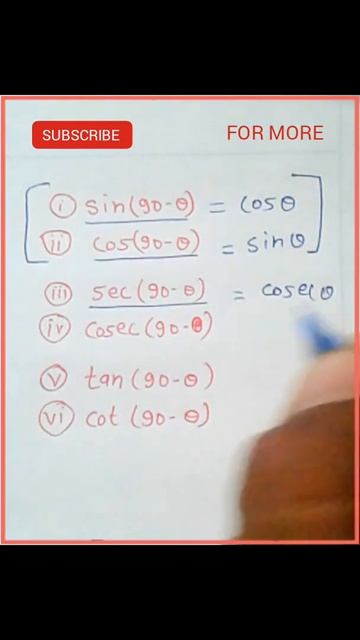 SUBSCRIBE FOR MORE
(i) sin(90-θ) = cosθ
(ii) cos(90-θ) = sinθ
(iii) sec(90-θ) = cosecθ
(iv) cosec(90-θ)
(v) tan(90-θ)
(vi) cot(90-θ)